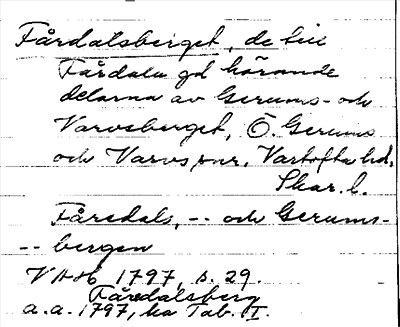 Fårdalsberget, de till
Fårdala gd hörande
delarna av Gerums- och
Varvsberget, Ö. Gerums
och Varvs snr, Vartofta hd.
Skar. l.
Fåredals, -- och Gerums-
-- bergen
VAH 1797, s. 29.
Fåredalsberg
a.a. 1797, ka Tab. I.